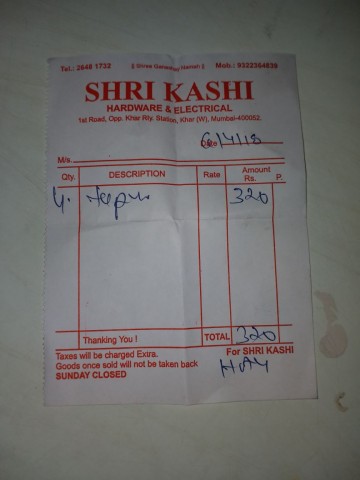 Tel.: 2648 1732 || Shree Ganeshay Namah || Mob.: 9322364639
SHRI KASHI
HARDWARE & ELECTRICAL
1st Road, Opp. Khar Rly. Station, Khar (W), Mumbai-400052.
6/4/18
M/s.
Qty. DESCRIPTION Rate Amount Rs. P.
4. 320
Thanking You ! TOTAL 320
Taxes will be charged Extra. For SHRI KASHI
Goods once sold will not be taken back
SUNDAY CLOSED